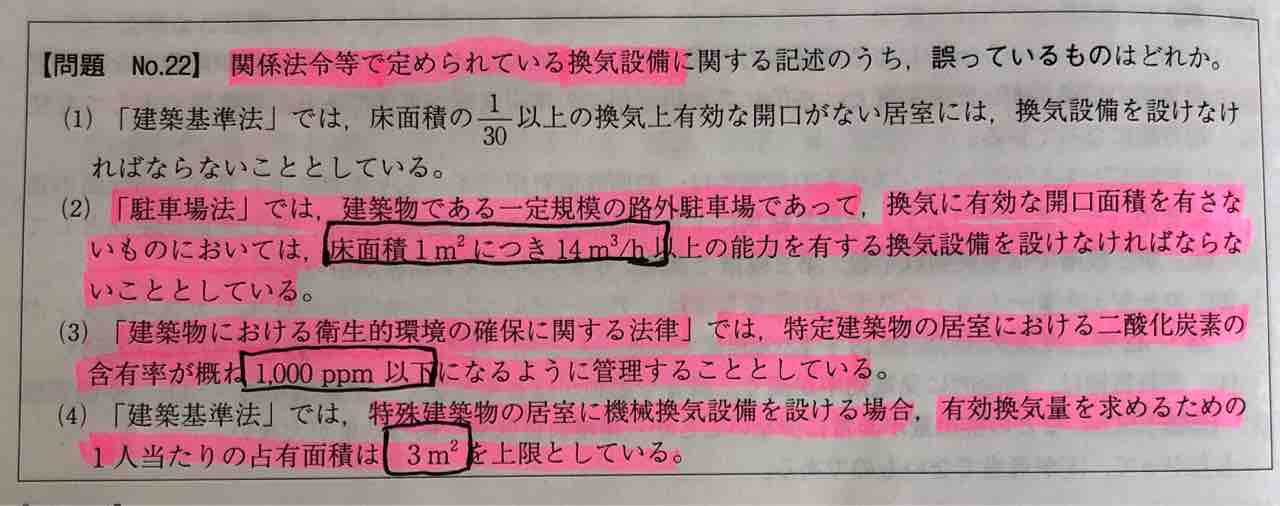 【問題 No.22】 関係法令等で定められている換気設備に関する記述のうち，誤っているものはどれか。
(1) 「建築基準法」では，床面積の1/30以上の換気上有効な開口がない居室には，換気設備を設けなけ
ればならないこととしている。
(2) 「駐車場法」では，建築物である一定規模の路外駐車場であって，換気に有効な開口面積を有さな
いものにおいては，床面積1m²につき14m³/h以上の能力を有する換気設備を設けなければならな
いこととしている。
(3) 「建築物における衛生的環境の確保に関する法律」では，特定建築物の居室における二酸化炭素の
含有率が概ね1,000 ppm 以下になるように管理することとしている。
(4) 「建築基準法」では，特殊建築物の居室に機械換気設備を設ける場合，有効換気量を求めるための
1人当たりの占有面積は 3m²を上限としている。